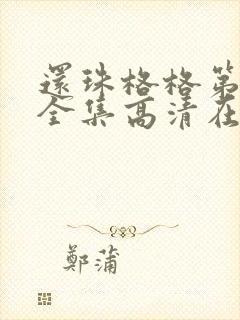 還珠格格第
全集高清在
鄭蒲